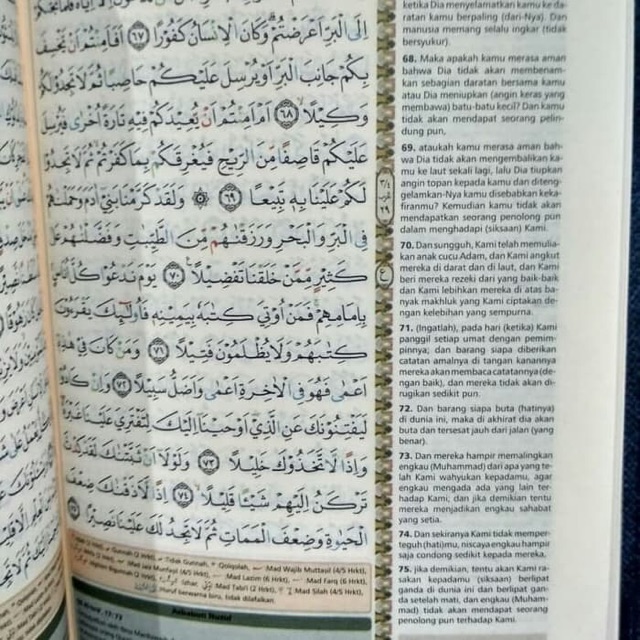 إِلَى الْبَرِّ أَعْرَضْتُمْ وَكَانَ الْإِنْسَانُ كَفُورًا ٦٧ أَفَأَمِنْتُمْ أَنْ يَخْسِفَ
بِكُمْ جَانِبَ الْبَرِّ أَوْ يُرْسِلَ عَلَيْكُمْ حَاصِبًا ثُمَّ لَا تَجِدُوا لَكُمْ
وَكِيلًا ٦٨ أَمْ أَمِنْتُمْ أَنْ يُعِيدَكُمْ فِيهِ تَارَةً أُخْرَى فَيُرْسِلَ
عَلَيْكُمْ قَاصِفًا مِنَ الرِّيحِ فَيُغْرِقَكُمْ بِمَا كَفَرْتُمْ ثُمَّ لَا تَجِدُوا
لَكُمْ عَلَيْنَا بِهِ تَبِيعًا ٦٩ ۞ وَلَقَدْ كَرَّمْنَا بَنِي آدَمَ وَحَمَلْنَاهُمْ
فِي الْبَرِّ وَالْبَحْرِ وَرَزَقْنَاهُمْ مِنَ الطَّيِّبَاتِ وَفَضَّلْنَاهُمْ عَلَى
كَثِيرٍ مِمَّنْ خَلَقْنَا تَفْضِيلًا ٧٠ يَوْمَ نَدْعُو كُلَّ أُنَاسٍ
بِإِمَامِهِمْ فَمَنْ أُوتِيَ كِتَابَهُ بِيَمِينِهِ فَأُولَئِكَ يَقْرَءُونَ
كِتَابَهُمْ وَلَا يُظْلَمُونَ فَتِيلًا ٧١ وَمَنْ كَانَ فِي هَذِهِ
أَعْمَى فَهُوَ فِي الْآخِرَةِ أَعْمَى وَأَضَلُّ سَبِيلًا ٧٢ وَإِنْ كَادُوا
لَيَفْتِنُونَكَ عَنِ الَّذِي أَوْحَيْنَا إِلَيْكَ لِتَفْتَرِيَ عَلَيْنَا غَيْرَهُ
وَإِذًا لَاتَّخَذُوكَ خَلِيلًا ٧٣ وَلَوْلَا أَنْ ثَبَّتْنَاكَ لَقَدْ كِدْتَ
تَرْكَنُ إِلَيْهِمْ شَيْئًا قَلِيلًا ٧٤ إِذًا لَأَذَقْنَاكَ ضِعْفَ
الْحَيَاةِ وَضِعْفَ الْمَمَاتِ ثُمَّ لَا تَجِدُ لَكَ عَلَيْنَا نَصِيرًا ٧٥
Asbabun Nuzul
ketika Dia menyelamatkan kamu ke da-
ratan kamu berpaling (dari-Nya). Dan
manusia memang selalu ingkar (tidak
bersyukur).
68. Maka apakah kamu merasa aman
bahwa Dia tidak akan membenam-
kan sebagian daratan bersama kamu
atau Dia meniupkan (angin keras yang
membawa) batu-batu kecil? Dan kamu
tidak akan mendapat seorang pelin-
dung pun,
69. ataukah kamu merasa aman bah-
wa Dia tidak akan mengembalikan ka-
mu ke laut sekali lagi, lalu Dia tiupkan
angin topan kepada kamu dan diteng-
gelamkan-Nya kamu disebabkan keka-
firanmu? Kemudian kamu tidak akan
mendapatkan seorang penolong pun
dalam menghadapi (siksaan) Kami.
70. Dan sungguh, Kami telah memulia-
kan anak cucu Adam, dan Kami angkut
mereka di darat dan di laut, dan Kami
beri mereka rezeki dari yang baik-baik
dan Kami lebihkan mereka di atas ba-
nyak makhluk yang Kami ciptakan de-
ngan kelebihan yang sempurna.
71. (Ingatlah), pada hari (ketika) Kami
panggil setiap umat dengan pemim-
pinnya; dan barang siapa diberikan
catatan amalnya di tangan kanannya
mereka akan membaca catatannya (de-
ngan baik), dan mereka tidak akan di-
rugikan sedikit pun.
72. Dan barang siapa buta (hatinya)
di dunia ini, maka di akhirat dia akan
buta dan tersesat jauh dari jalan (yang
benar).
73. Dan mereka hampir memalingkan
engkau (Muhammad) dari apa yang te-
lah Kami wahyukan kepadamu, agar
engkau mengada ada yang lain ter-
hadap Kami; dan jika demikian tentu
mereka menjadikan engkau sahabat
yang setia.
74. Dan sekiranya Kami tidak memper-
teguh (hati)mu, niscaya engkau hampir
saja condong sedikit kepada mereka,
75. jika demikian, tentu akan Kami ra-
sakan kepadamu (siksaan) berlipat
ganda di dunia ini dan berlipat gan-
da setelah mati, dan engkau (Muham-
mad) tidak akan mendapat seorang
penolong pun terhadap Kami.